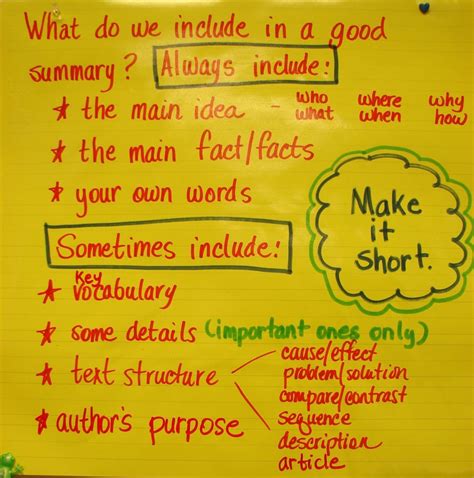 What do we include in a good
summary? Always include:
★ the main idea - who what where when why how
★ the main fact/facts
★ your own words
Make
it
short.
Sometimes include:
★ Key vocabulary
★ some details (important ones only)
★ text structure
cause/effect
problem/solution
compare/contrast
sequence
description
article
★ author's purpose